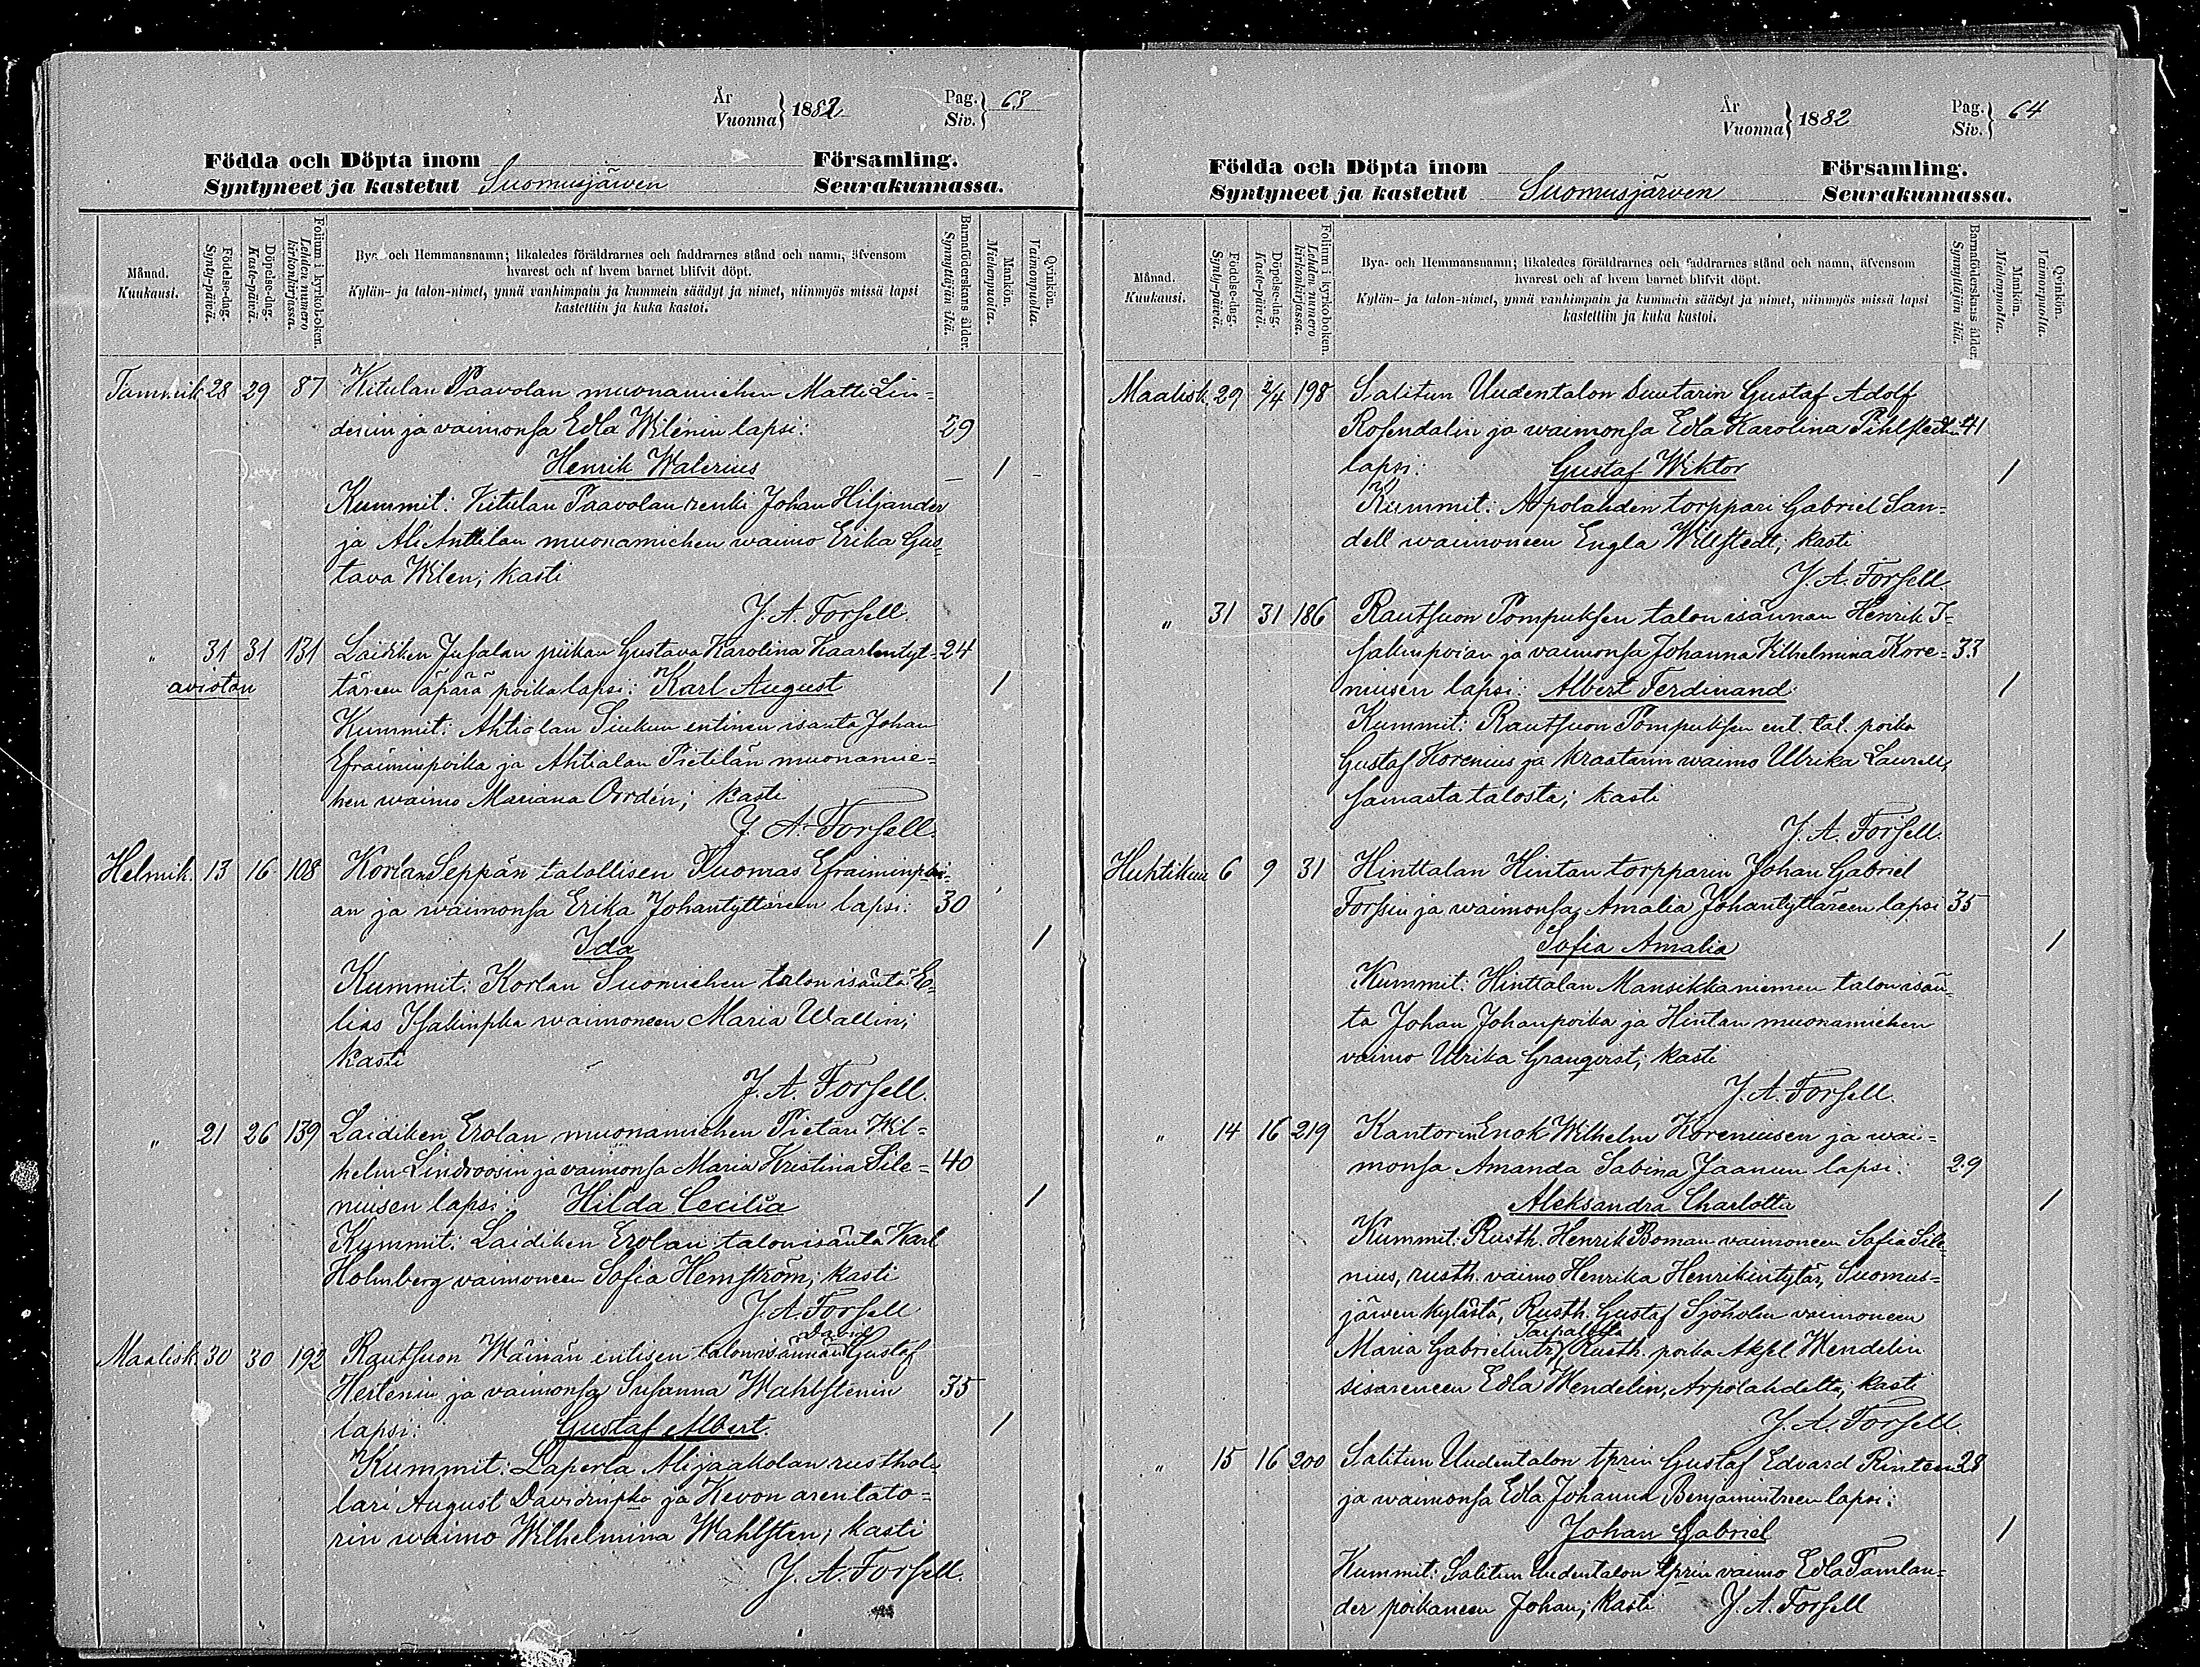 År
Vuonna } 1882
Pag.
Siv. } 63
Födda och Döpta inom Församling.
Syntyneet ja kastetut Suomusjärven Seurakunnassa.
Månad.
Kuukausi.
Födelse-dag.
Synty-päivä.
Döpelse-dag.
Kaste-päivä.
Folium i kyrkoboken.
Lehden numero kirkonkirjassa.
Bya- och Hemmansnamn; likaledes föräldrarnes och faddrarnes stånd och namn, äfvensom
hvarest och af hvem barnet blifvit döpt.
Kylän- ja talon-nimet, ynnä vanhimpain ja kummein säädyt ja nimet, niinmyös missä lapsi
kastettiin ja kuka kastoi.
Barnaföderskans ålder.
Synnyttäjän ikä.
Mankön.
Miehenpuolta.
Qvinkön.
Vaimonpuolta.
Tammik 28 29 87 Kitulan Paavolan muonamiehen Matti Lin=
denin ja vaimonsa Edla Wilénin lapsi: 29
Henrik Walerius 1
Kummit: Kitulan Paavolan renki Johan Hiljander
ja Ali Anttilan muonamiehen waimo Erika Gus=
tava Wilen; kasti
J. A. Forsell.
" 31 31 131 Laidiken Jusalan piikan Gustava Karolina Kaarlentyt= 24
aviotan täreen äpärä poikalapsi: Karl August 1
Kummit: Ahtialan Siukun entinen isäntä Johan
Efraiminpoika ja Ahtialan Pietilän muonamie=
hen waimo Mariana Orrdén; kasti
J. A. Forsell.
Helmik. 13 16 108 Korlan Seppän talollisen Tuomas Efraiminpoi=
an ja waimonsa Erika Johantyttäreen lapsi: 30
Ida 1
Kummit: Korlan Suomiehen talon isäntä E=
lias Isakinpka waimoneen Maria Wallin;
kasti
J. A. Forsell.
" 21 26 139 Laidiken Erolan muonamiehen Pietari Wil=
helm Lindroosin ja vaimonsa Maria Kristina Sile= 40
niusen lapsi: Hilda Cecilia 1
Kummit: Laidiken Erolan talonisäntä Karl
Holmberg vaimoneen Sofia Hemström; kasti
J. A. Forsell
David
Maalisk 30 30 192 Rautsuon Wäinän entisen talonisännän Gustaf
Hertenin ja vaimonsa Susanna Wahlsténin 35
lapsi: Gustaf Albert. 1
Kummit: Laperla Alijaakolan rusthol=
lari August Davidinpka ja Kevon arentato=
rin waimo Wilhelmina Wahlsten; kasti
J. A. Forsell.
År
Vuonna } 1882
Pag.
Siv. } 64
Födda och Döpta inom Församling.
Syntyneet ja kastetut Suomusjärven Seurakunnassa.
Månad.
Kuukausi.
Födelse-dag.
Synty-päivä.
Döpelse-dag.
Kaste-päivä.
Folium i kyrkoboken.
Lehden numero kirkonkirjassa.
Bya- och Hemmansnamn; likaledes föräldrarnes och faddrarnes stånd och namn, äfvensom
hvarest och af hvem barnet blifvit döpt.
Kylän- ja talon-nimet, ynnä vanhimpain ja kummein säädyt ja nimet, niinmyös missä lapsi
kastettiin ja kuka kastoi.
Barnaföderskans ålder.
Synnyttäjän ikä.
Mankön.
Miehenpuolta.
Qvinkön.
Vaimonpuolta.
Maalisk. 29 2/4 198 Salitun Uudentalon Suutarin Gustaf Adolf
Rosendalin ja waimonsa Edla Karolina Pihlstedtin 41
lapsi: Gustaf Wiktor 1
Kummit: Arpolahden torppari Gabriel San=
dell waimoneen Engla Willstedt; kasti
J. A. Forsell.
" 31 31 186 Rautsuon Pompuksen talon isännän Henrik I=
sakinpoian ja vaimonsa Johanna Wilhelmina Kore= 33
niusen lapsi: Albert Ferdinand 1
Kummit: Rautsuon Pompuksen ent. tal. poika
Gustaf Korenius ja kraatarin waimo Ulrika Laurell,
samasta talosta; kasti
J. A. Forsell.
Huhtikuu 6 9 31 Hinttalan Hintan torpparin Johan Gabriel
Forssin ja waimonsa Amalia Johantyttäreen lapsi 35
Sofia Amalia 1
Kummit: Hinttalan Mansikkaniemen talonisän=
tä Johan Johanpoika ja Hintan muonamiehen
vaimo Ulrika Granqvist; kasti
J. A. Forsell.
" 14 16 219 Kantorin Enok Wilhelm Koreniusen ja wai=
monsa Amanda Sabina Jaanun lapsi: 29
Aleksandra Charlotta 1
Kummit: Rusth. Henrik Boman vaimoneen Sofia Sile=
nius, rusth. vaimo Henrika Henrikintytär, Suomus=
järven kylästä, Rusth. Gustaf Sjöholm vaimoneen
Taipaleelta
Maria Gabrielintr, Rusth. poika Aksel Wendelin
sisareneen Edla Wendelin, Arpolahdelta; kasti
J. A. Forsell.
" 15 16 200 Salitun Uudentalon tprin Gustaf Edvard Rinteen 28
ja waimonsa Edla Johanna Benjamintreen lapsi:
Johan Gabriel 1
Kummit: Salitun Uudentalon tprin vaimo Edla Tamlan=
der poikaneen Johan; kasti J. A. Forsell